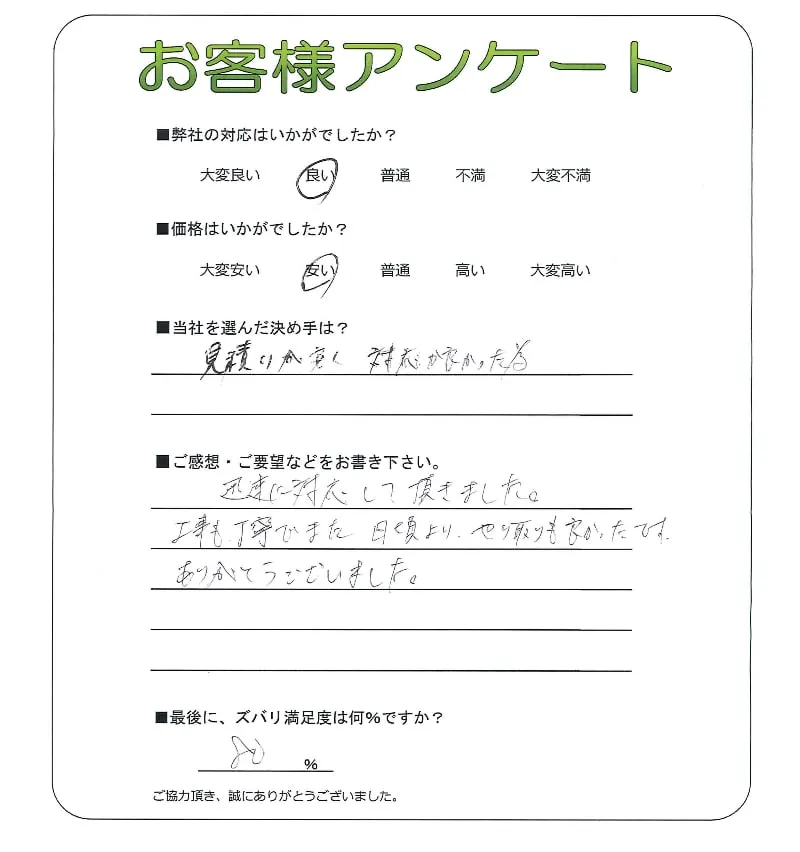 お客様アンケート
■弊社の対応はいかがでしたか？
大変良い 良い 普通 不満 大変不満
■価格はいかがでしたか？
大変安い 安い 普通 高い 大変高い
■当社を選んだ決め手は？
見積りが安く 対応が良かった為
■ご感想・ご要望などをお書き下さい。
迅速に対応して頂きました。
工事も丁寧でまた 日頃より、やり取りも良かったです.
ありがとうございました。
■最後に、ズバリ満足度は何%ですか？
80 %
ご協力頂き、誠にありがとうございました。